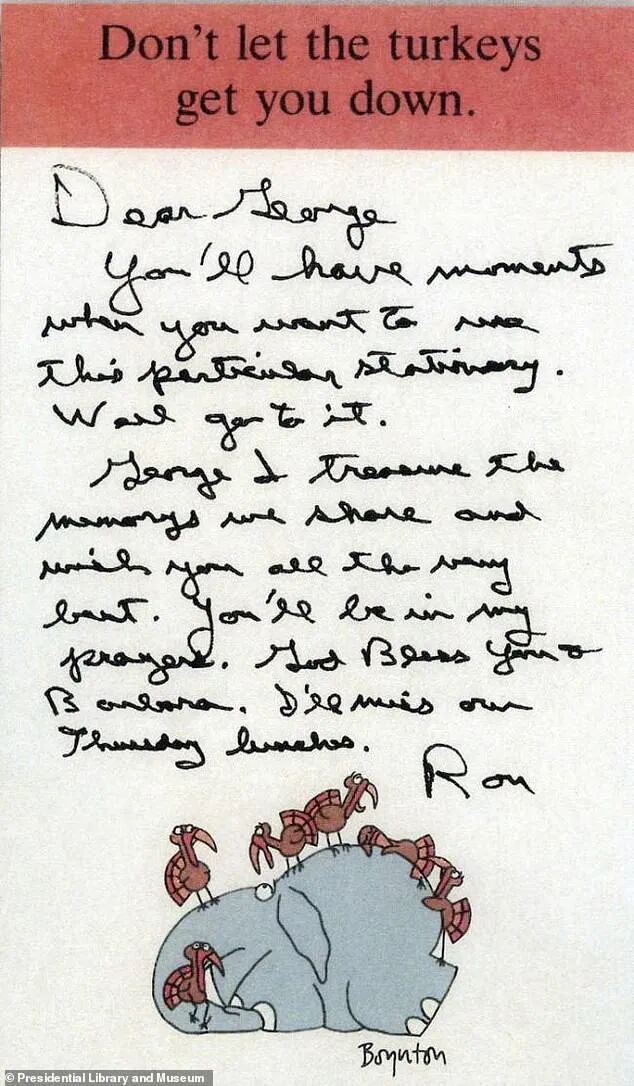 Don't let the turkeys
get you down.
Dear George
You'll have moments
when you want to use
this particular stationary.
Well go to it.
George I treasure the
memorys we share and
wish you all the very
best. You'll be in my
prayers. God Bless You &
Barbara. I'll miss our
Thursday lunches.
Ron
Boynton
© Presidential Library and Museum